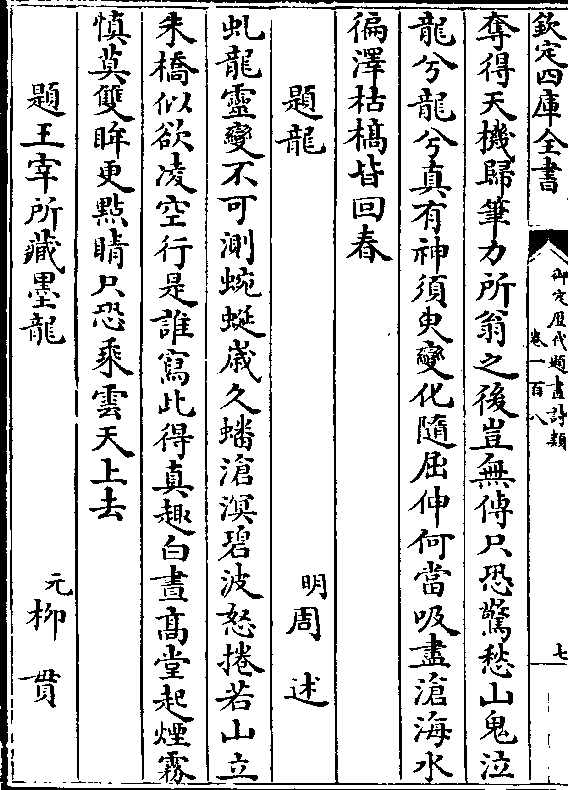 欽定四庫全書
御定歷代題畫詩類
卷一百八
七
奪得天機歸筆力所翁之後豈無傳只恐驚愁山鬼泣
龍兮龍兮真有神須臾變化隨屈伸何當吸盡滄海水
徧澤枯槁皆回春
題龍 明 周述
虬龍靈變不可測蜿蜒歲久蟠滄溟碧波怒捲若山立
朱橋似欲凌空行是誰寫此得真趣白晝高堂起煙霧
慎莫雙眸更點睛只恐乘雲天上去
題王宰所藏墨龍 元 柳貫